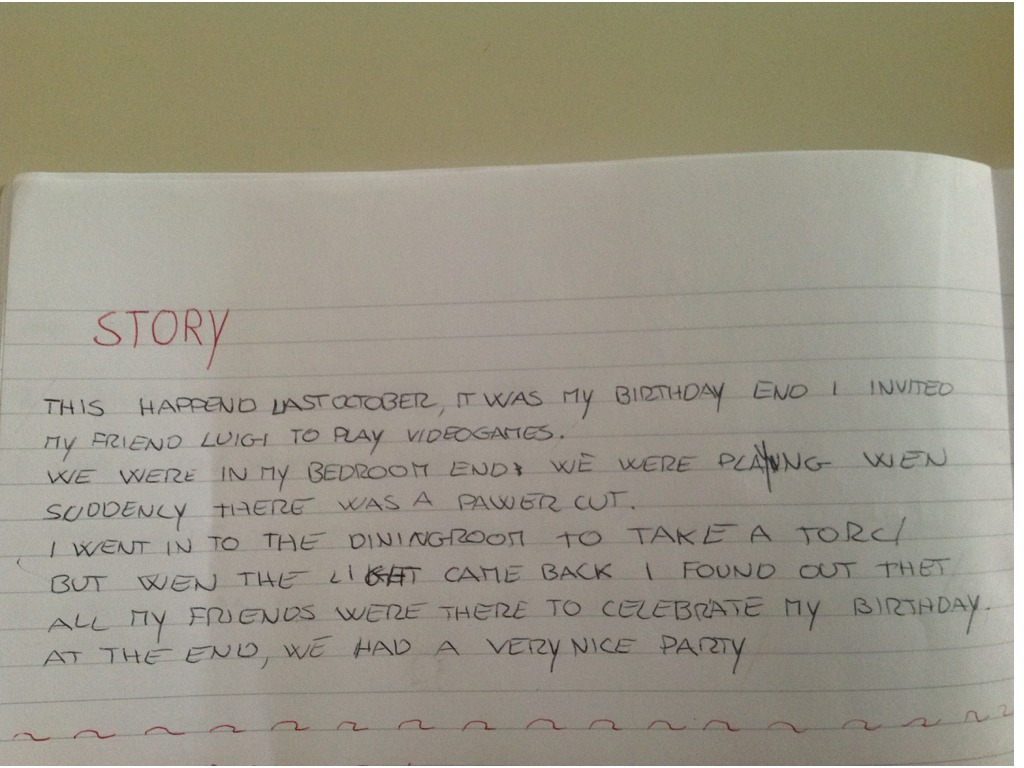 STORY
THIS HAPPEND LAST OCTOBER, IT WAS MY BIRTHDAY END I INVITED
MY FRIEND LUIGI TO PLAY VIDEOGAMES.
WE WERE IN MY BEDROOM END WE WERE PLAYING WEN
SUDDENLY THERE WAS A PAWER CUT.
I WENT IN TO THE DININGROOM TO TAKE A TORC
BUT WEN THE LIGHT CAME BACK I FOUND OUT THET
ALL MY FRIENDS WERE THERE TO CELEBRATE MY BIRTHDAY.
AT THE END, WE HAD A VERY NICE PARTY